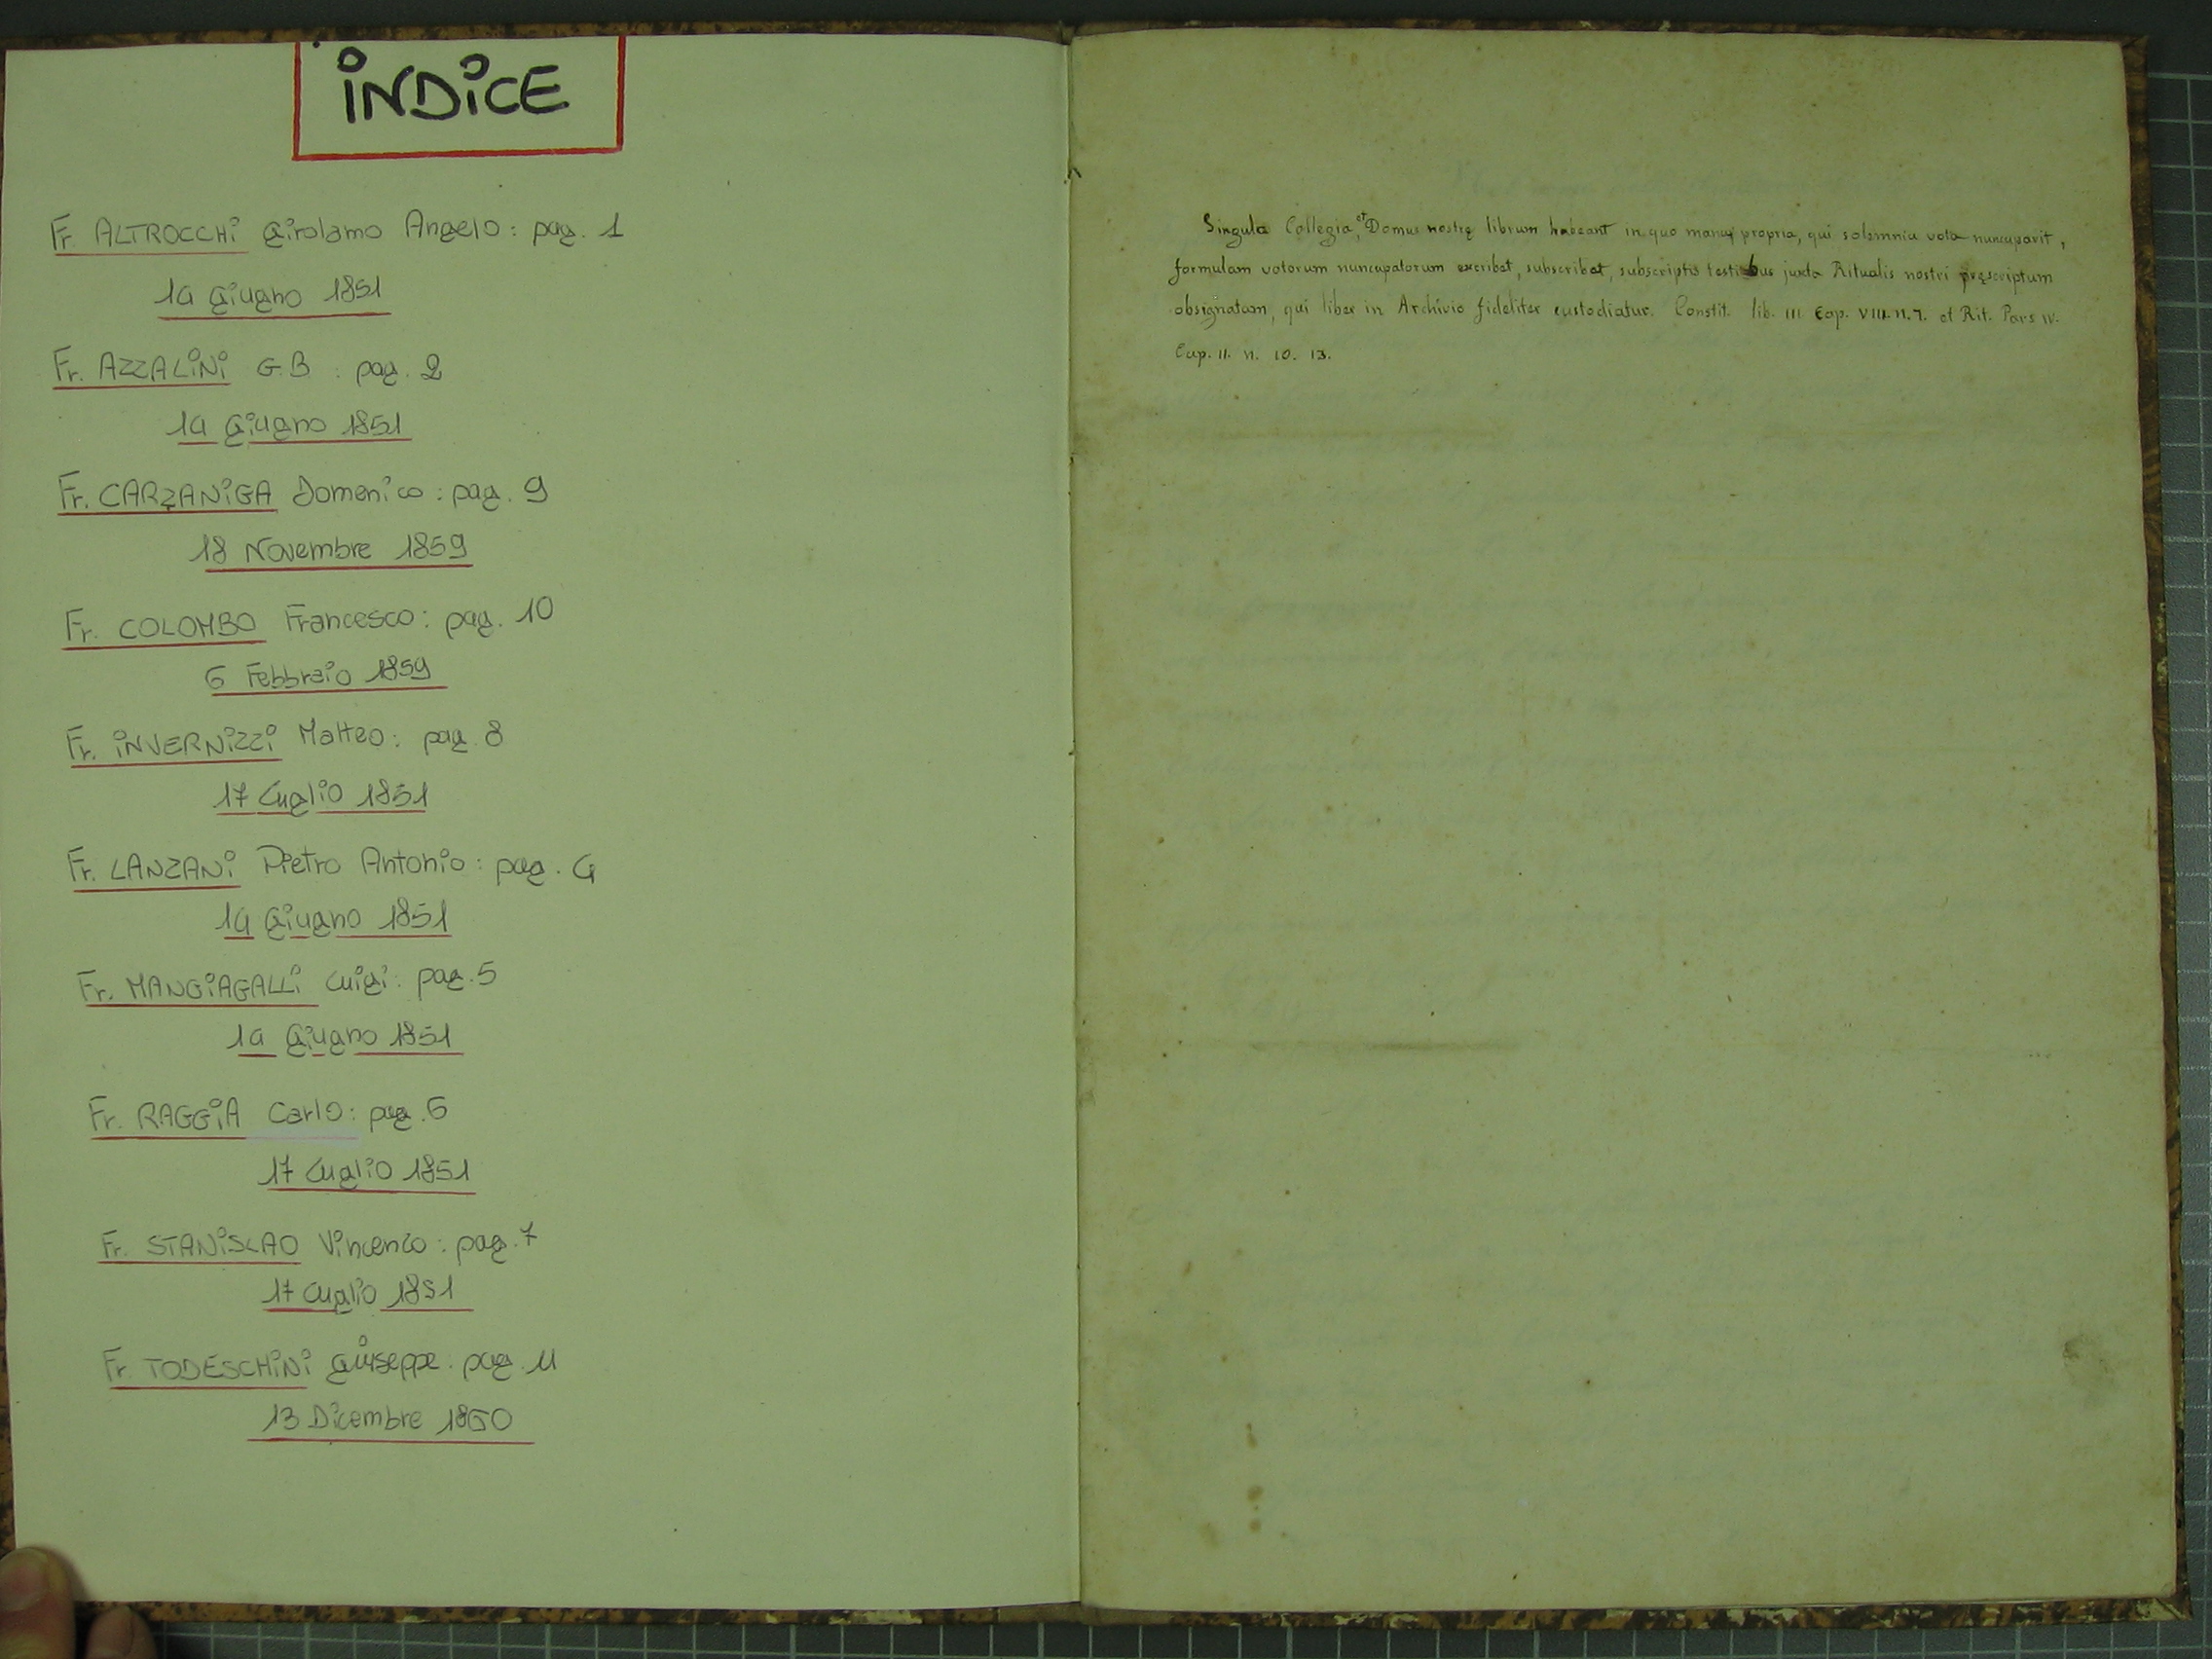 INDICE
Fr. ALTROCCHI Girolamo Angelo: pag. 1
14 Giugno 1851
Fr. AZZALINI G.B : pag. 2
14 Giugno 1851
Fr. CARZANIGA Domenico: pag. 9
18 Novembre 1859
Fr. COLOMBO Francesco: pag. 10
6 Febbraio 1859
Fr. INVERNIZZI Matteo: pag. 8
17 Luglio 1851
Fr. LANZANI Pietro Antonio: pag. 4
14 Giugno 1851
Fr. MANGIAGALLI Luigi: pag. 5
14 Giugno 1851
Fr. RAGGIA Carlo: pag. 6
17 Luglio 1851
Fr. STANISLAO Vincenzo: pag. 7
17 Luglio 1851
Fr. TODESCHINI Giuseppe: pag. 11
13 Dicembre 1860
Singula Collegia, et Domus nostrę librum habeant in quo manu propria, qui solemnia vota nuncupavit,
formulam votorum nuncupatorum excribat, subscribat, subscriptis testibus juxta Ritualis nostri pręscriptum
obsignatam, qui liber in Archivio fideliter custodiatur. Constit. lib. III Cap. VIII. n. 7. et Rit. Pars IV.
Cap. II. n. 10. 13.